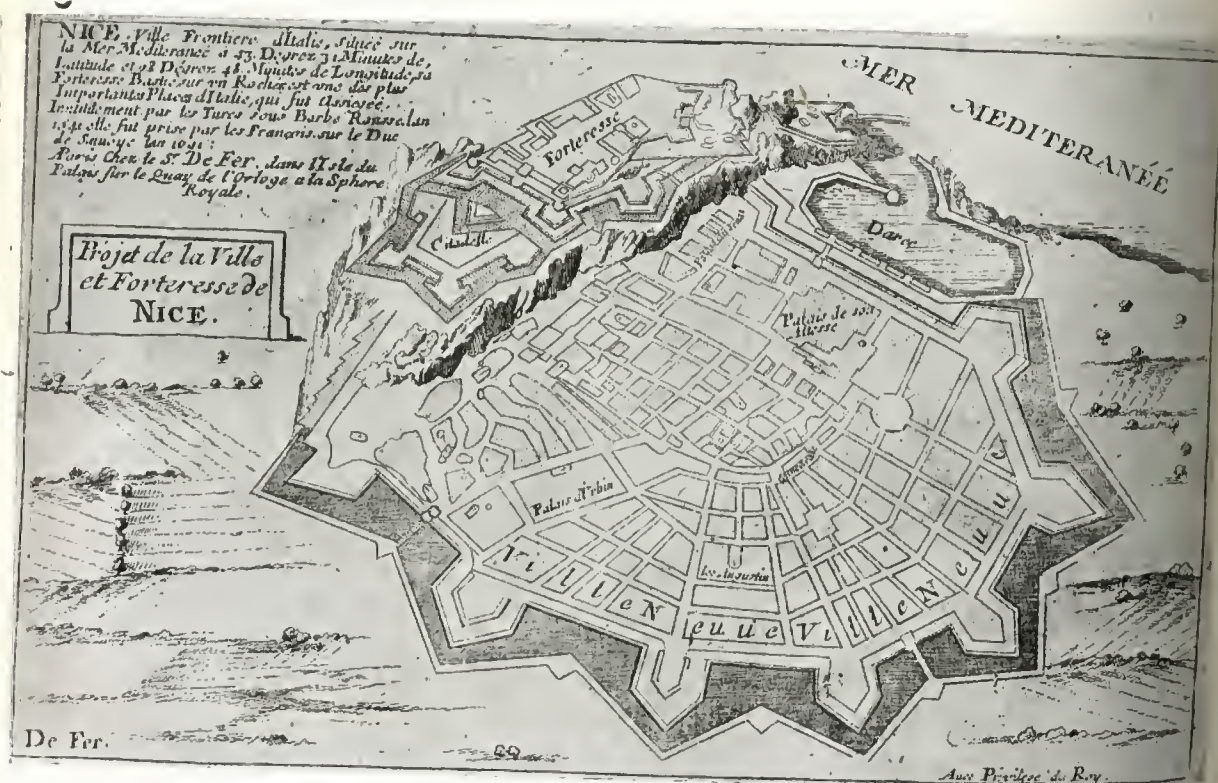 NICE, Ville Frontiere d'Italie, située sur
la Mer Mediteraneé a 43. Degrez 31 Minutes de,
Latitude et 28 Degrez 48. Minutes de Longitude, sa
Forteresse Bastie sur un Rocher est une des plus
Importante Places d'Italie, qui fut Assiegée
Inutilement par les Turcs sous Barbe Rousse lan
elle fut prise par les François sur le Duc
de Sauoye lan 1691:
A Paris Chez le Sr. De Fer. dans l'Isle du
Palais sur le Quay de l'Orloge a la Sphere
Royale.
Projet de la Ville
et Forteresse de
NICE.
MER MEDITERANÉÉ
Forteresse
Citadelle
Darce
Palais de son
Altesse
Palais d'Vrbin
les Augustin
Ville Neuuue Ville Neuuue
De Fer.
Auec Privilege du Roy.